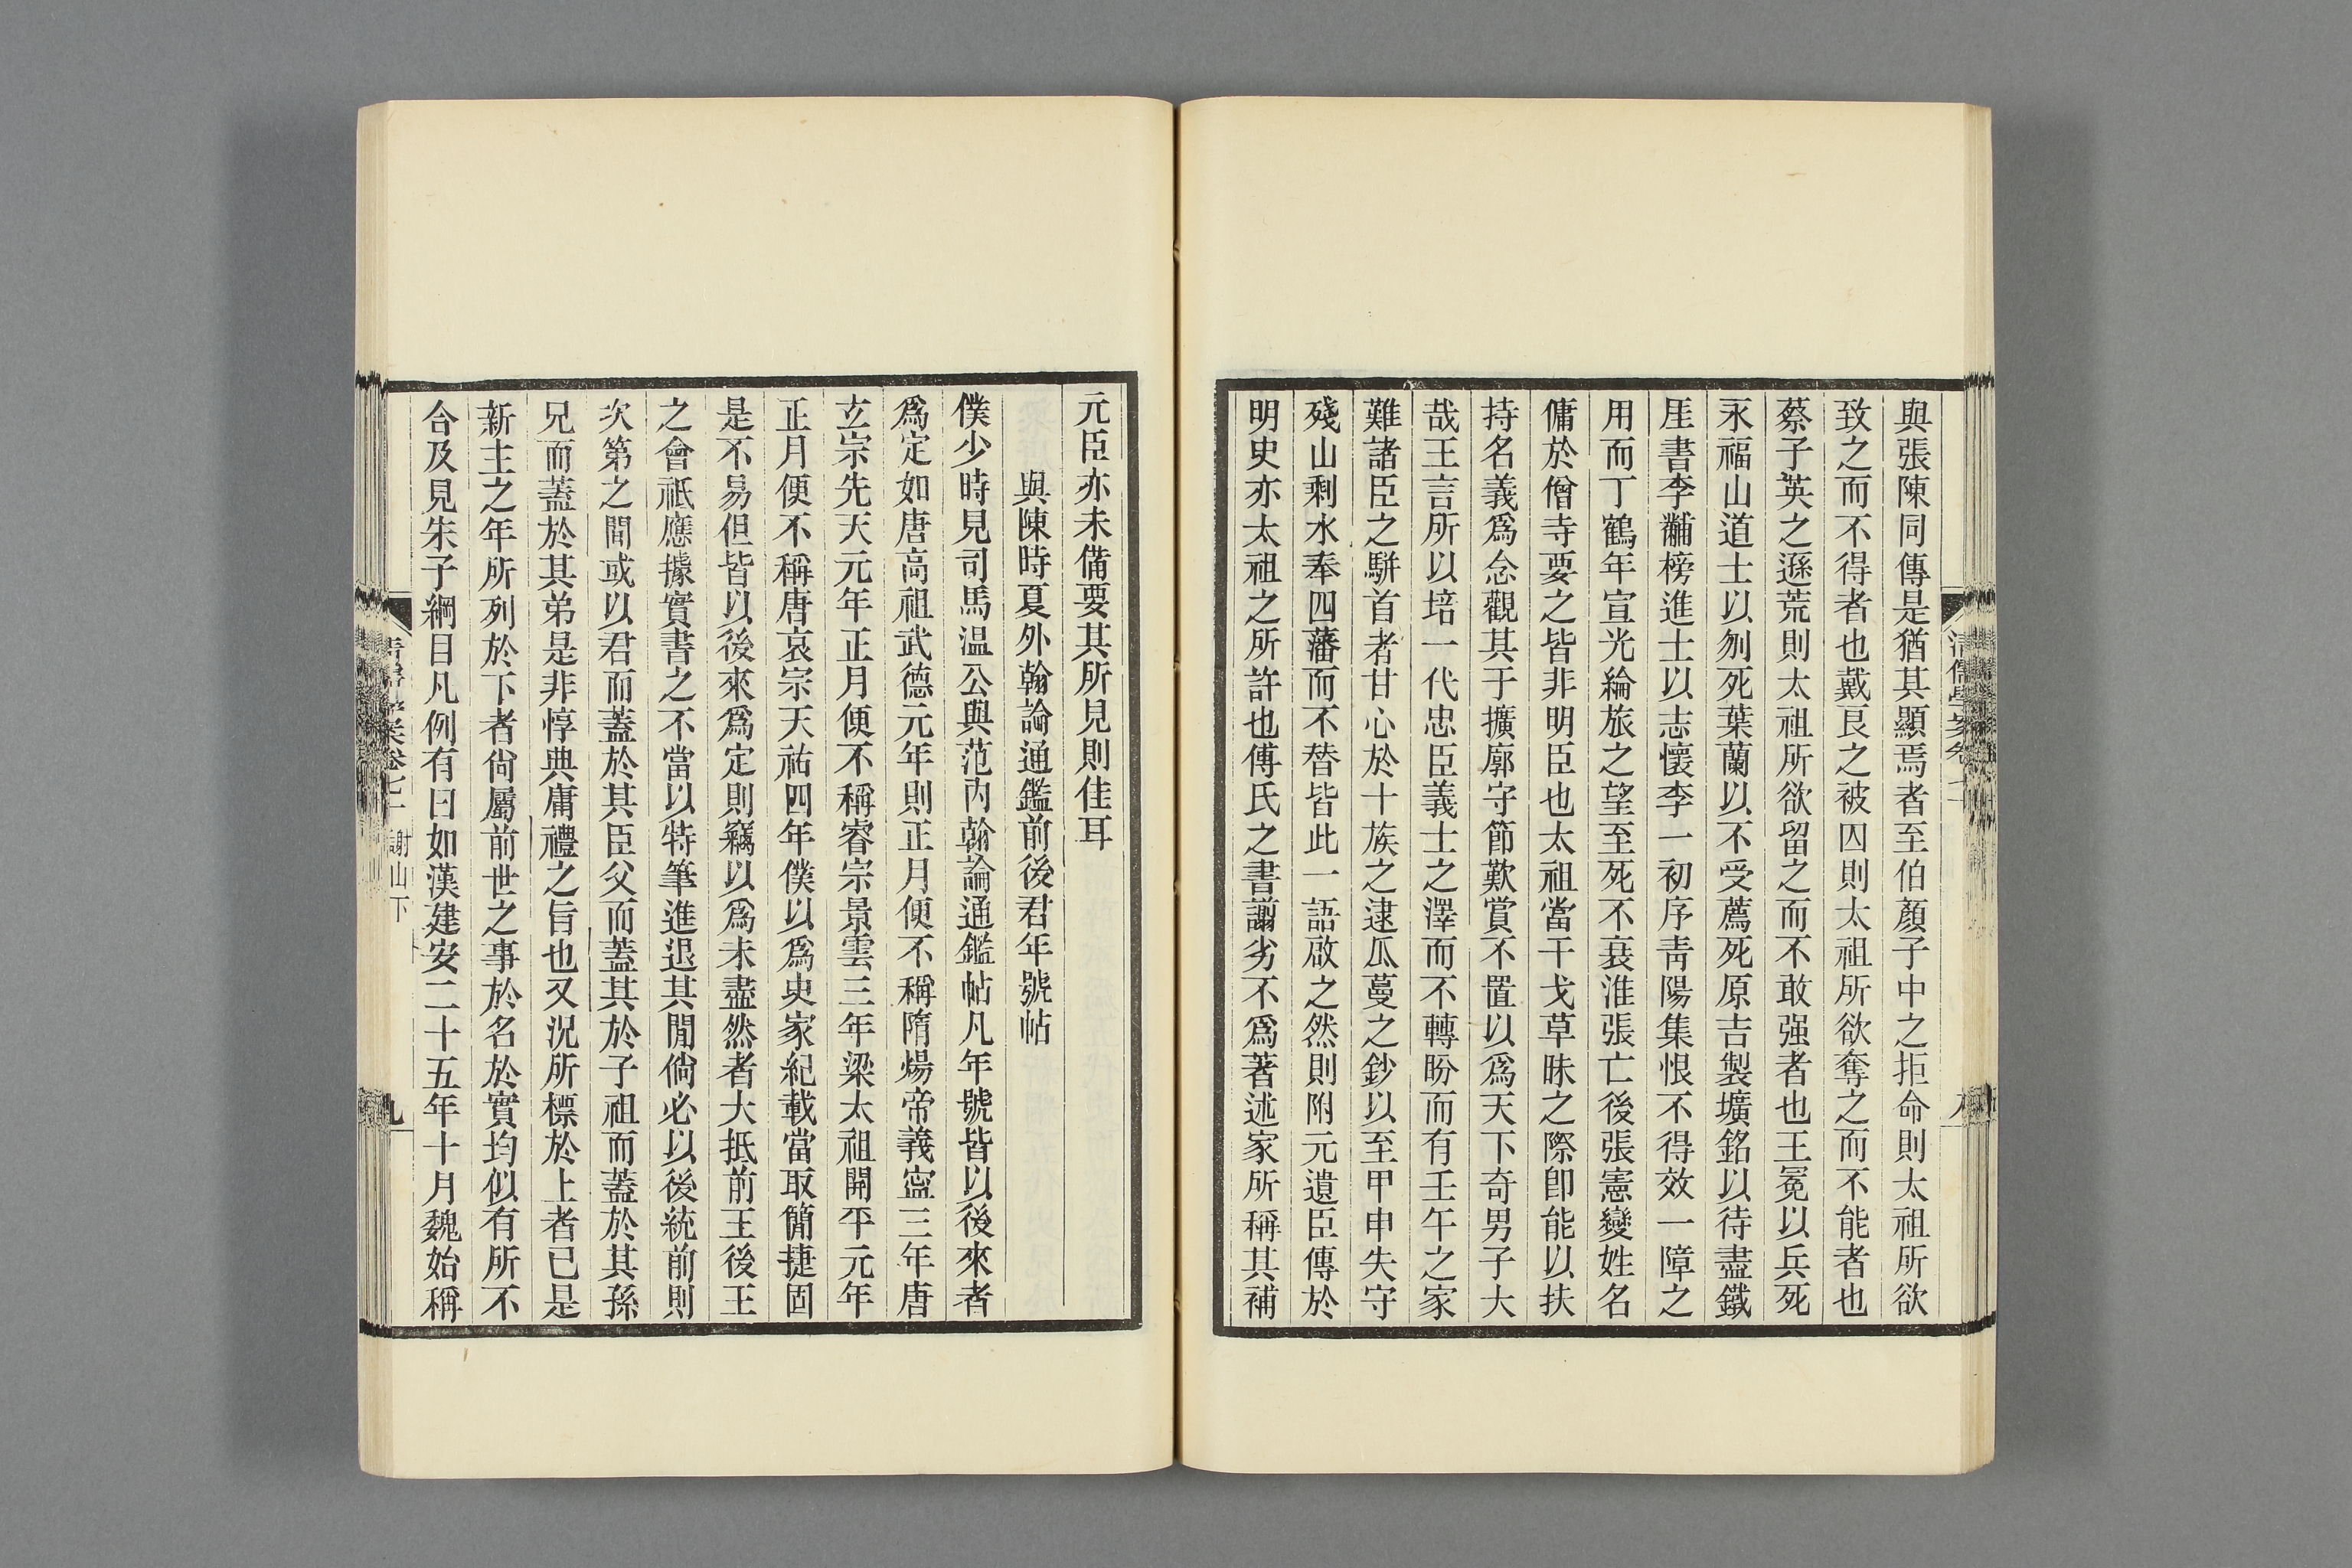 與張陳同傳是猶其顯焉者至伯顏子中之拒命則太祖所欲
致之而不得者也戴良之被囚則太祖所欲奪之而不能者也
蔡子英之遜荒則太祖所欲留之而不敢强者也王冕以兵死
永福山道士以刎死葉蘭以不受薦死原吉製壙銘以待盡鐵
厓書李黼榜進士以志懷李一初序靑陽集恨不得效一障之
用而丁鶴年宣光綸旅之望至死不衰淮張亡後張憲變姓名
傭於僧寺要之皆非明臣也太祖當干戈草昧之際卽能以扶
持名義爲念觀其于擴廓守節歎賞不置以爲天下奇男子大
哉王言所以培一代忠臣義士之澤而不轉盼而有壬午之家
難諸臣之駢首者甘心於十族之逮瓜蔓之鈔以至甲申失守
殘山剩水奉四藩而不替皆此一語啟之然則附元遺臣傳於
明史亦太祖之所許也傅氏之書譾劣不爲著述家所稱其補
元臣亦未備要其所見則佳耳
與陳時夏外翰論通鑑前後君年號帖
僕少時見司馬温公與范內翰論通鑑帖凡年號皆以後來者
爲定如唐高祖武德元年則正月便不稱隋煬帝義寧三年唐
玄宗先天元年正月便不稱睿宗景雲三年梁太祖開平元年
正月便不稱唐哀宗天祐四年僕以爲史家紀載當取簡捷固
是不易但皆以後來爲定則竊以爲未盡然者大抵前王後王
之會祗應據實書之不當以特筆進退其閒倘必以後統前則
次第之間或以君而蓋於其臣父而蓋其於子祖而蓋於其孫
兄而蓋於其弟是非惇典庸禮之旨也又況所標於上者已是
新主之年所列於下者尙屬前世之事於名於實均似有所不
合及見朱子綱目凡例有曰如漢建安二十五年十月魏始稱
謝山下
九